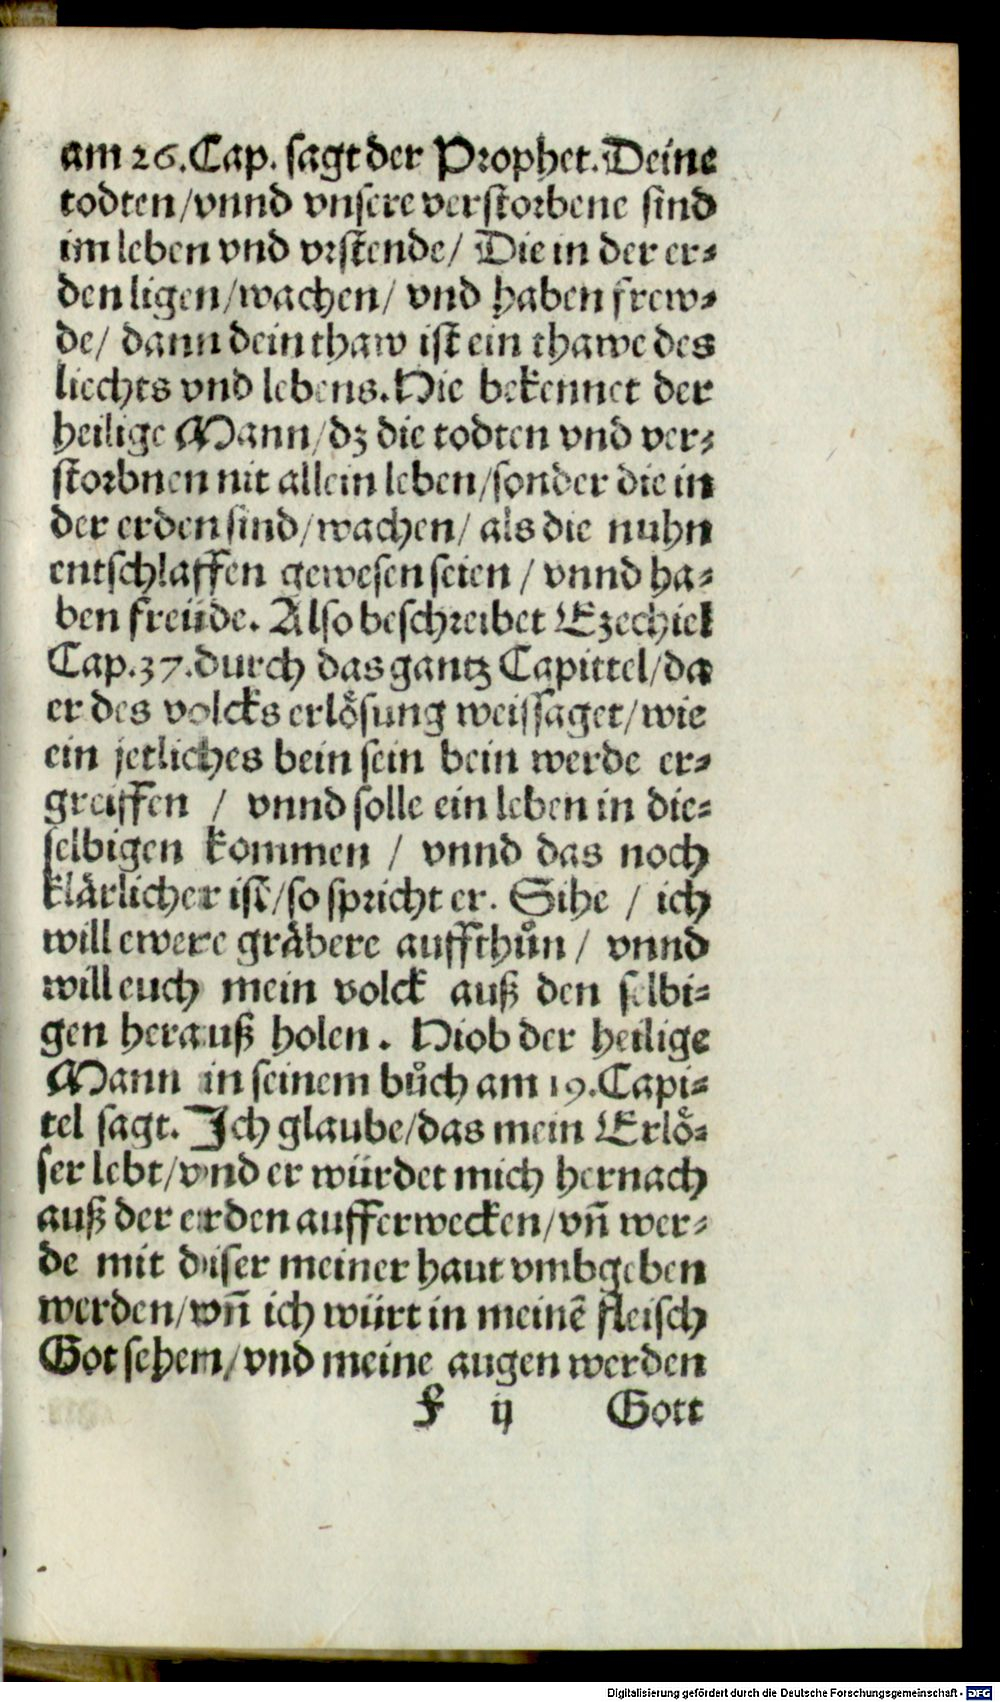 am 26. Cap. sagt der Prophet. Deine
todten/vnnd vnsere verstorbene sind
im leben vnd vrstende/ Die in der er⸗
den ligen/wachen/ vnd haben frew⸗
de/ dann dein thaw ist ein thawe des
liechts vnd lebens. Hie bekennet der
heilige Mann/dz die todten vnd ver⸗
storbnen nit allein leben/sonder die in
der erden sind/wachen/ als die nuhn
entschlaffen gewesen seien / vnnd ha⸗
ben freüde. Also beschreibet Ezechiel
Cap. 37. durch das gantz Capittel/da
er des volcks erlösung weissaget/wie
ein jetliches bein sein bein werde er⸗
greiffen / vnnd solle ein leben in die⸗
selbigen kommen / vnnd das noch
klärlicher ist/so spricht er. Sihe / ich
will ewere gräbere auffthůn / vnnd
will euch mein volck auß den selbi⸗
gen herauß holen. Hiob der heilige
Mann in seinem bůch am 19. Capi⸗
tel sagt. Ich glaube/das mein Erlö⸗
ser lebt/vnd er würdet mich hernach
auß der erden aufferwecken/vñ wer⸗
de mit diser meiner haut vmbgeben
werden/vñ ich würt in meinẽ fleisch
Got sehen/vnd meine augen werden
F ij Gott
Digitalisierung gefördert durch die Deutsche Forschungsgemeinschaft - DFG